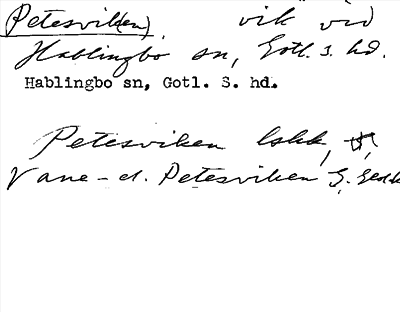 Petesvik(en), vik vid
Hablingbo sn, Gotl. S. hd.
Hablingbo sn, Gotl. S. hd.
Petesviken
Vane- el. Petesviken